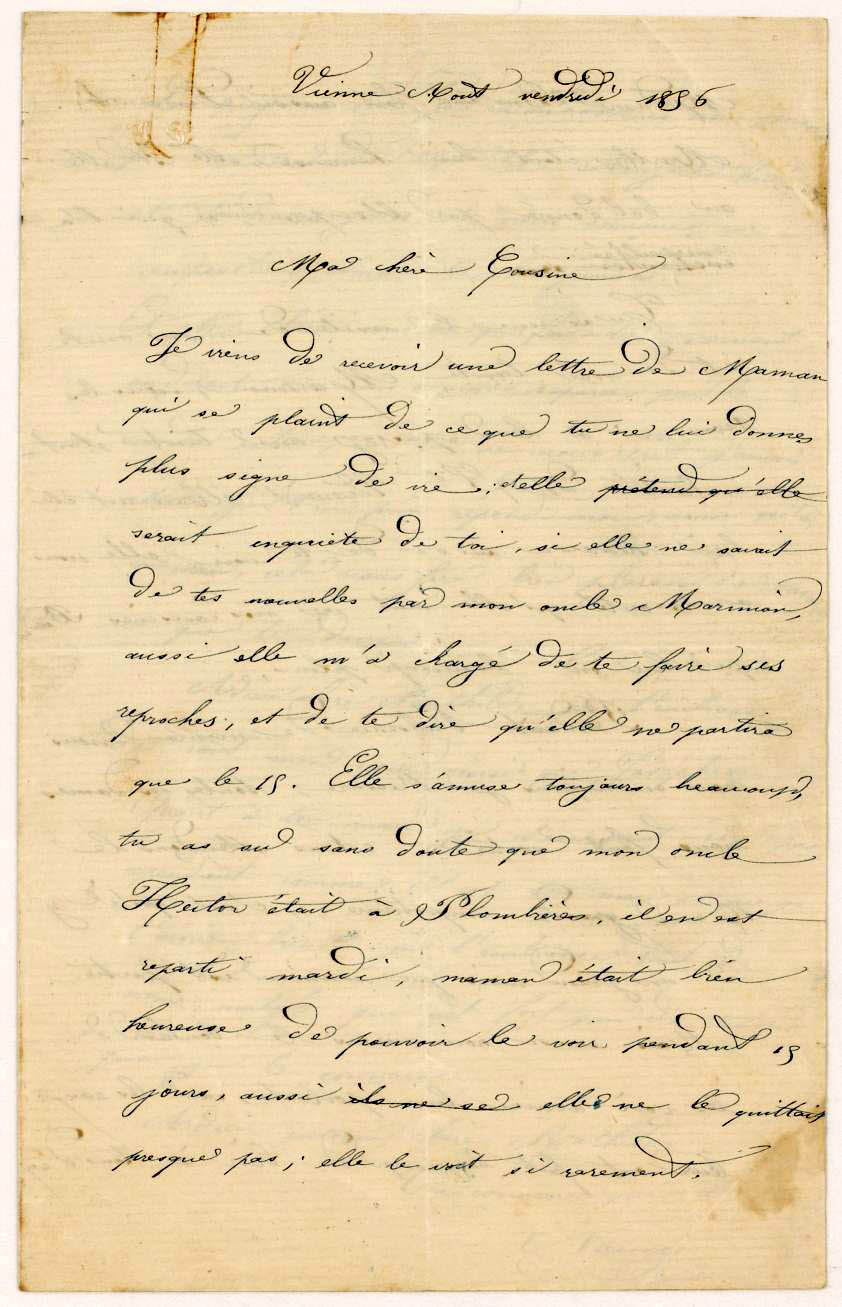 Vienne Août vendredi 1856
Ma chère Cousine
Je viens de recevoir une lettre de Maman
qui se plaint de ce que tu ne lui donnes
plus signe de vie ; elle prétend qu'elle
serait inquiète de toi, si elle ne savait
de tes nouvelles par mon oncle Marmion,
aussi elle m'a chargé de te faire ses
reproches, et de te dire qu'elle ne partira
que le 15. Elle s'amuse toujours beaucoup,
tu as su sans doute que mon oncle
Hector était à Plombières, il en est
reparti mardi, maman était bien
heureuse de pouvoir le voir pendant 15
jours, aussi ils ne se elle ne le quittait
presque pas ; elle le voit si rarement.